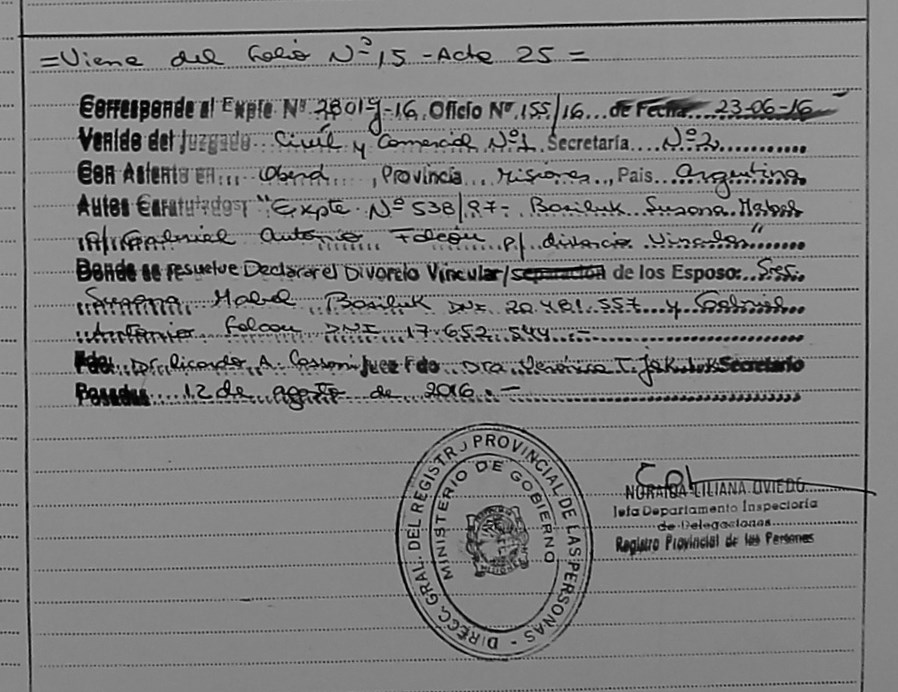 =Viene del Folio Nº 15 - Acta 25 =
Corresponde al Expte Nº 28019-16. Oficio Nº 155/16... de Fecha 23-06-16
Venido del Juzgado Civil y Comercial Nº1. Secretaría Nº2
Con Asiento en Oberá, Provincia Misiones, Pais Argentina
Autos Caratulados: "Expte Nº 538/97- Basiluk Susana Mabel
Antonio Falcón p/ divorcio Vincular"
Donde se resuelve Declarar el Divorcio Vincular/separación de los Esposo: Sres.
Susana Mabel Basiluk DNI 20.481.557 y Gabriel
Antonio Falcon DNI 17.652.544.-
Fdo: Dr. Ricardo A. Juez Fdo Dra Verónica T. Secretario
Posadas 12 de agosto de 2016.-
DIRECC. GRAL. DEL REGISTRO PROVINCIAL DE LAS PERSONAS -
MINISTERIO DE GOBIERNO
MISIONES
NORAIDA LILIANA OVIEDO
Jefa Departamento Inspectoria
de Delegaciones
Registro Provincial de las Personas